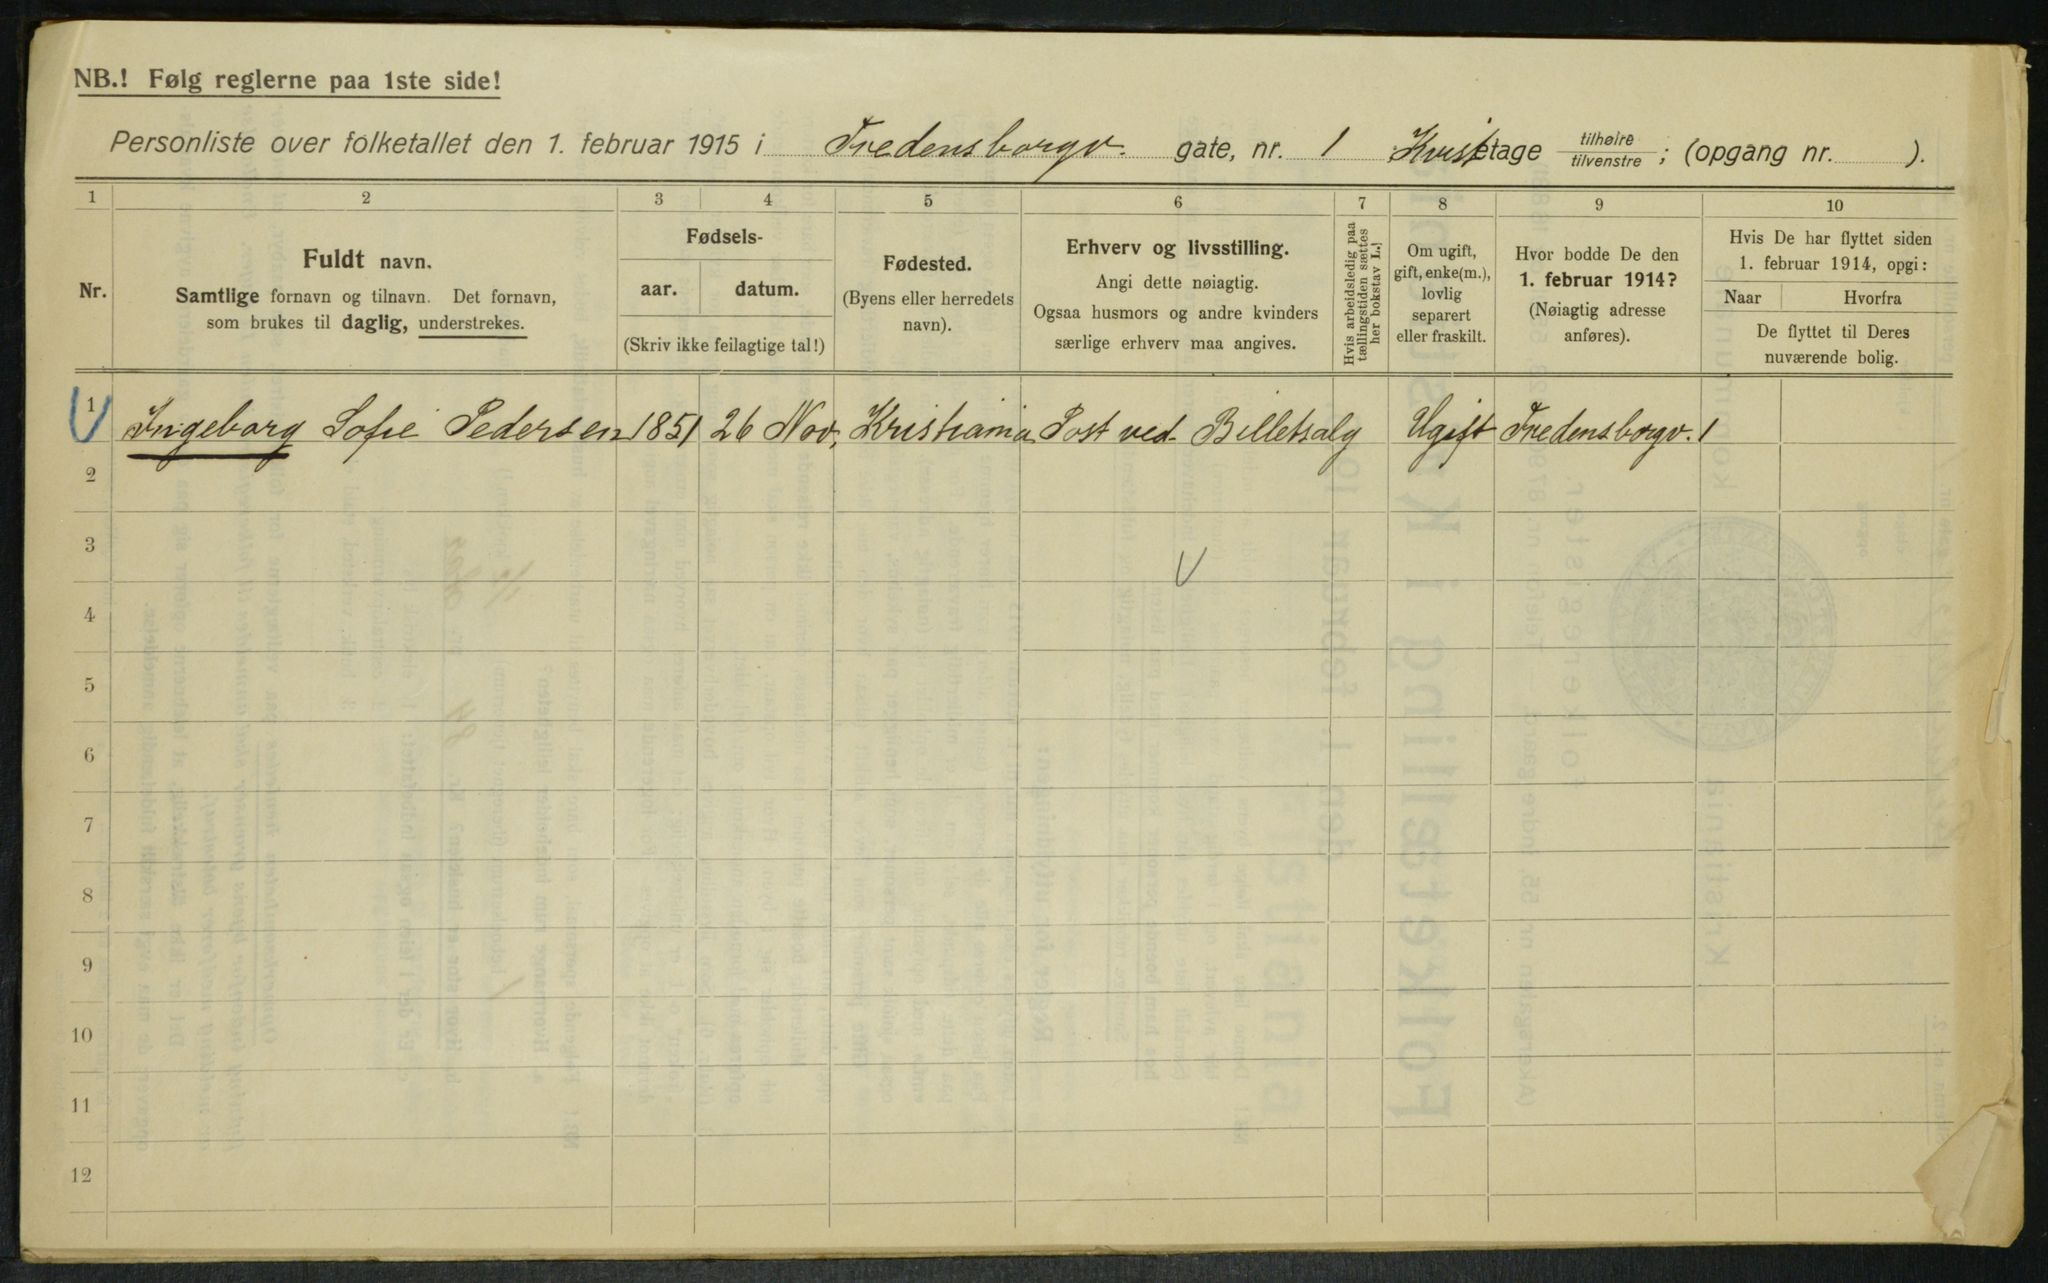 NB.! Følg reglerne paa 1ste side!
Personliste over folketallet den 1. februar 1915 i Fredensborgv. gate, nr. 1 Kvist etage tilhøire/tilvenstre; (opgang nr. ).
1 2 3 4 5 6 7 8 9 10
Nr.
Fuldt navn.
Samtlige fornavn og tilnavn. Det fornavn,
som brukes til daglig, understrekes.
Fødsels-
aar. datum.
(Skriv ikke feilagtige tal!)
Fødested.
(Byens eller herredets
navn).
Erhverv og livsstilling.
Angi dette nøiagtig.
Ogsaa husmors og andre kvinders
særlige erhverv maa angives.
Hvis arbeidsledig paa
tællingstiden sættes
her bokstav L.!
Om ugift,
gift, enke(m.),
lovlig
separert
eller fraskilt.
Hvor bodde De den
1. februar 1914?
(Nøiagtig adresse
anføres).
Hvis De har flyttet siden
1. februar 1914, opgi:
Naar Hvorfra
De flyttet til Deres
nuværende bolig.
1 Ingeborg Sofie Pedersen 1851 26 Nov. Kristiania Post ved Billetsalg Ugift Fredensborgv. 1
2
3
4
5
6
7
8
9
10
11
12